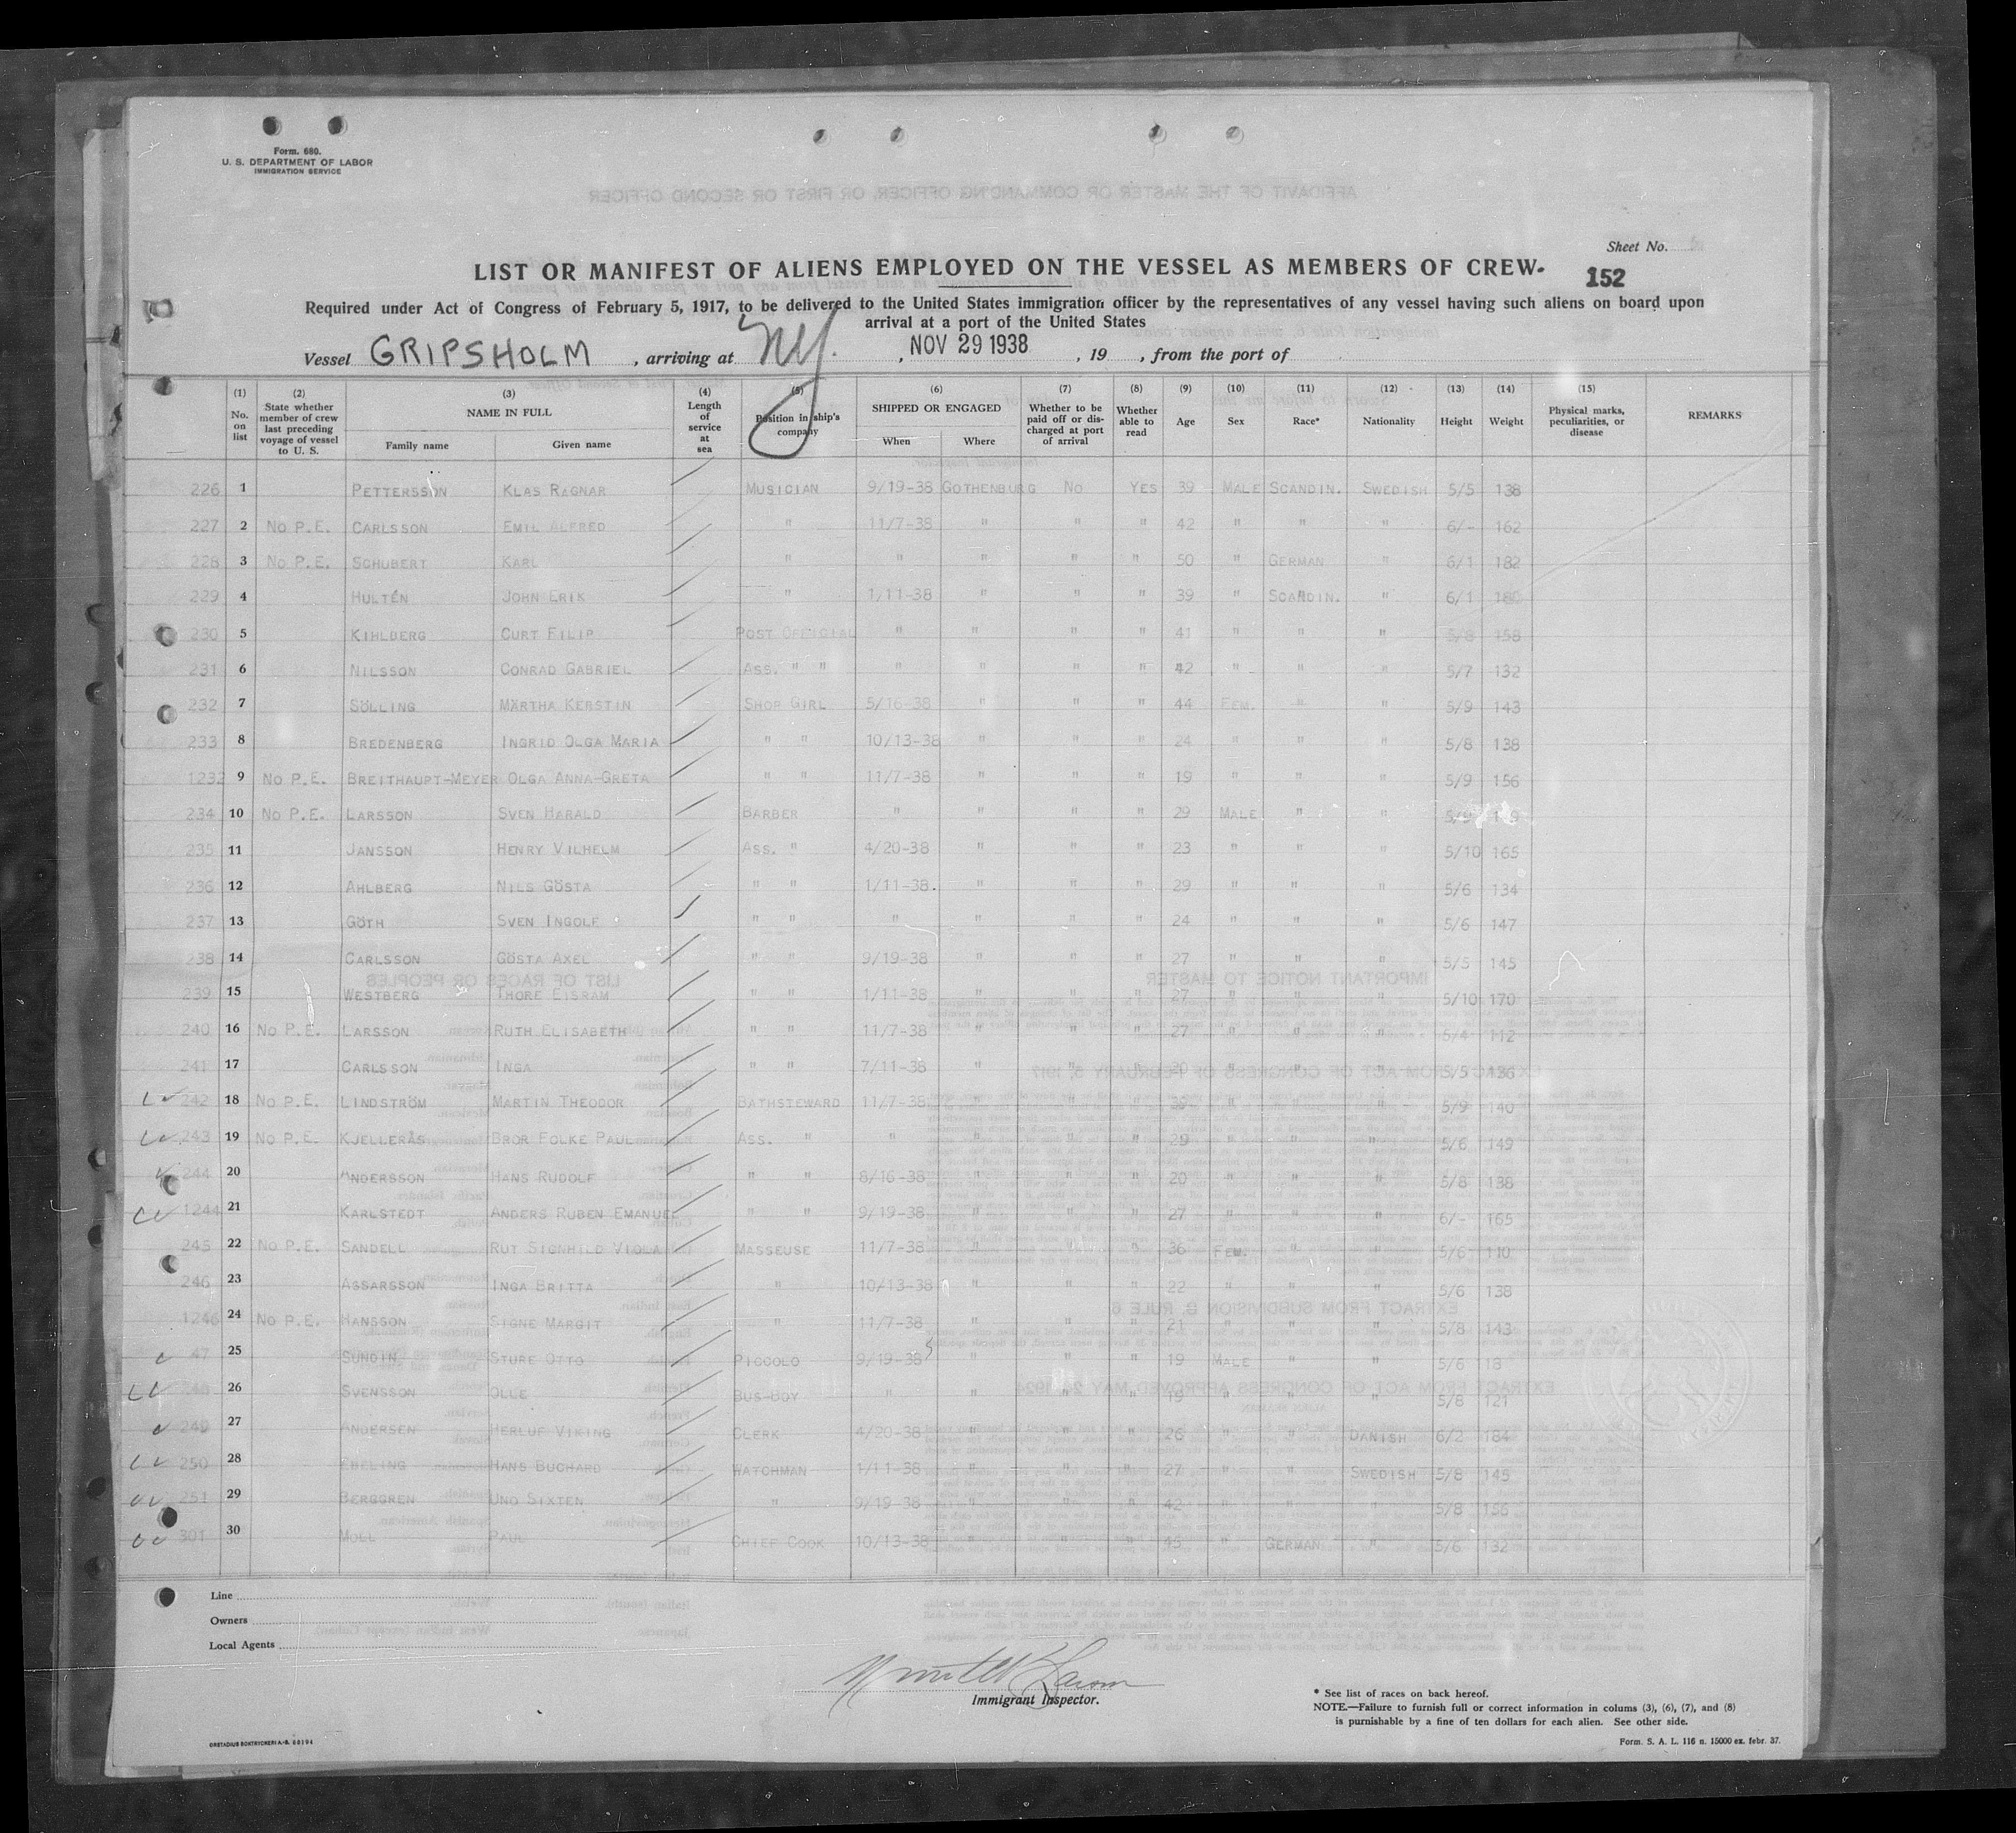 Form. 680.
U. S. DEPARTMENT OF LABOR
IMMIGRATION SERVICE
Sheet No.
LIST OR MANIFEST OF ALIENS EMPLOYED ON THE VESSEL AS MEMBERS OF CREW.
152
Required under Act of Congress of February 5, 1917, to be delivered to the United States immigration officer by the representatives of any vessel having such aliens on board upon
arrival at a port of the United States
Vessel GRIPSHOLM , arriving at NY. , NOV 29 1938 , 19 , from the port of
(1) No. on list (2) State whether member of crew last preceding voyage of vessel to U. S. (3) NAME IN FULL Family name Given name (4) Length of service at sea (5) Position in ship's company (6) SHIPPED OR ENGAGED When Where (7) Whether to be paid off or discharged at port of arrival (8) Whether able to read (9) Age (10) Sex (11) Race* (12) Nationality (13) Height (14) Weight (15) Physical marks, peculiarities, or disease REMARKS
226 1 PETTERSSON KLAS RAGNAR MUSICIAN 9/19-38 GOTHENBURG No YES 39 MALE SCANDIN. SWEDISH 5/5 138
227 2 No P.E. CARLSSON EMIL ALFRED " 11/7-38 " " " 42 " " " 6/- 162
228 3 No P.E. SCHUBERT KARL " " " " " 50 " GERMAN " 6/1 182
229 4 HULTÉN JOHN ERIK " 1/11-38 " " " 39 " SCANDIN. " 6/1
230 5 KIHLBERG CURT FILIP POST OFFICIAL " " " " 41 " " " 5/8 158
231 6 NILSSON CONRAD GABRIEL ASS. " " " " " " 42 " " " 5/7 132
232 7 SÖLLING MÄRTHA KERSTIN SHOP GIRL 5/16-38 " " " 44 FEM. " " 5/9 143
233 8 BREDENBERG INGRID OLGA MARIA " " 10/13-38 " " " 24 " " " 5/8 138
1232 9 No P.E. BREITHAUPT-MEYER OLGA ANNA-GRETA " " 11/7-38 " " " 19 " " " 5/9 156
234 10 No P.E. LARSSON SVEN HARALD BARBER " " " " 29 MALE " " 5/9
235 11 JANSSON HENRY VILHELM ASS. " 4/20-38 " " " 23 " " " 5/10 165
236 12 AHLBERG NILS GÖSTA " " 1/11-38. " " " 29 " " " 5/6 134
237 13 GÖTH SVEN INGOLF " " " " " " 24 " " " 5/6 147
238 14 CARLSSON GÖSTA AXEL " " 9/19-38 " " " 27 " " " 5/5 145
239 15 WESTBERG THORE EISRAM " " 1/11-38 " " " 27 " " " 5/10 170
240 16 No P.E. LARSSON RUTH ELISABETH " " 11/7-38 " " " 27 " " " 5/4 112
241 17 CARLSSON INGA " " 7/11-38 " " " 20 " " " 5/5 136
242 18 No P.E. LINDSTRÖM MARTIN THEODOR BATHSTEWARD 11/7-38 " " " 39 " " " 5/9 140
243 19 No P.E. KJELLERÅS BROR FOLKE PAUL ASS. " " " " " 29 " " " 5/6 149
244 20 ANDERSSON HANS RUDOLF " " 8/16-38 " " " 20 " " " 5/8 138
1244 21 KARLSTEDT ANDERS RUBEN EMANUEL " " 9/19-38 " " " 27 " " " 6/- 165
245 22 No P.E. SANDELL RUT SIGNHILD VIOLA MASSEUSE 11/7-38 " " " 36 FEM. " " 5/6 110
246 23 ASSARSSON INGA BRITTA " 10/13-38 " " " 22 " " " 5/6 138
1246 24 No P.E. HANSSON SIGNE MARGIT " 11/7-38 " " " 21 " " " 5/8 143
47 25 SUNDIN STURE OTTO PICCOLO 9/19-38 " " " 19 MALE " " 5/6
248 26 SVENSSON OLLE BUS-BOY " " " " 19 " " " 5/8 121
249 27 ANDERSEN HERLUF VIKING CLERK 4/20-38 " " " 26 " " DANISH 6/2 184
250 28 EBELING HANS BUCHARD WATCHMAN 1/11-38 " " " 27 " " SWEDISH 5/8 145
251 29 BERGGREN UNO SIXTEN " 9/19-38 " " " 42 " " " 5/8 156
301 30 MOLL PAUL CHIEF COOK 10/13-38 " " " 45 " GERMAN " 5/6 132
Line
Owners
Local Agents
Immigrant Inspector.
* See list of races on back hereof.
NOTE.—Failure to furnish full or correct information in colums (3), (6), (7), and (8)
is purnishable by a fine of ten dollars for each alien. See other side.
Form. S. A. L. 116 n. 15000 ex. febr. 37.